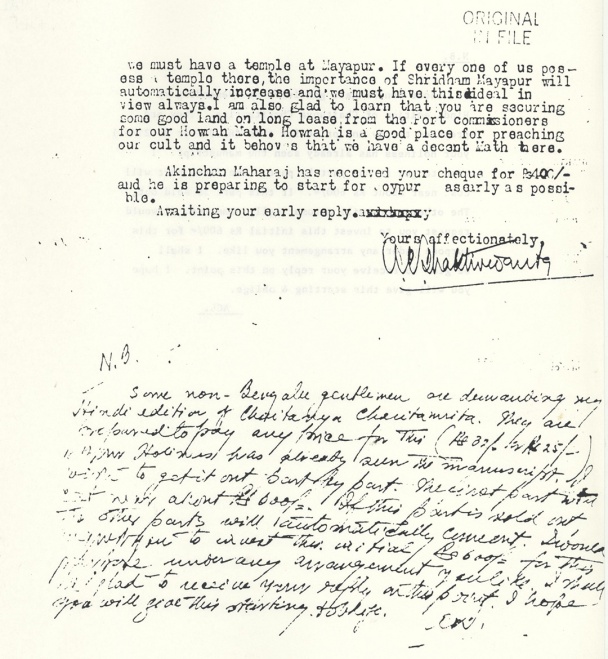 ORIGINAL
IN FILE
we must have a temple at Mayapur. If every one of us pos-
ess a temple there, the importance of Shridham Mayapur will
automatically increase and we must have this ideal in
view always. I am also glad to learn that you are securing
some good land on long lease from the Port commisioners
for our Howrah Math. Howrah is a good place for preaching
our cult and it behoves that we have a decent Math there.
Akinchan Maharaj has received your cheque for Rs400/-
and he is preparing to start for oypur as early as possi-
ble.
Awaiting your early reply.
Yours affectionately,
N.B.
Some non-Bengalee gentlemen are demanding my
Hindi edition of Chaitanya Charitamrita. They are
prepared to pay any price for this (Rs 32/- to Rs 25/-)
Your Holiness has already seen the manuscript. I
wish to get it out part by part. The first part will
cost now about Rs 600/-. If this part is sold out
the other parts will automatically come out. I would
request you to invest this initial Rs 600/- for this
purpose under any arrangement you like. I shall
be glad to receive your reply on this point. I hope
you will give this starting